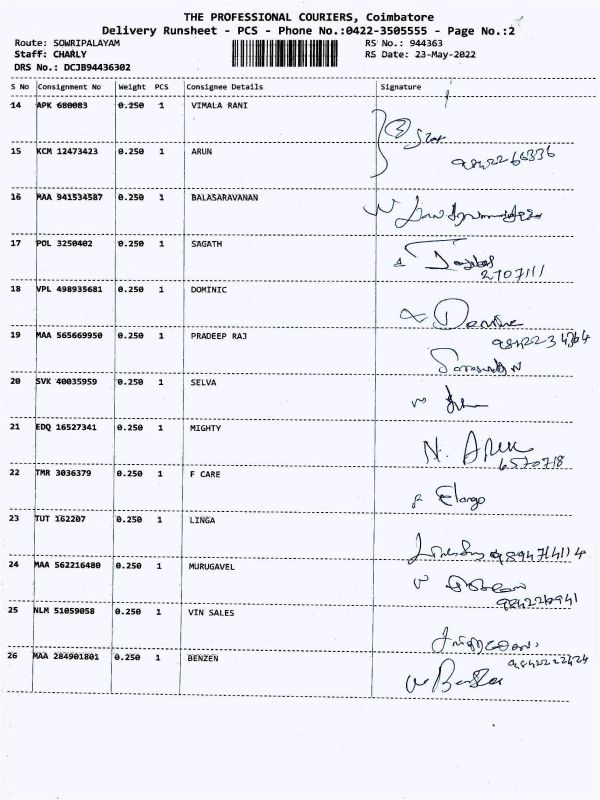 THE PROFESSIONAL COURIERS, Coimbatore
Delivery Runsheet - PCS - Phone No.:0422-3505555 - Page No.:2
Route: SOWRIPALAYAM RS No.: 944363
Staff: CHARLY RS Date: 23-May-2022
DRS No.: DCJB94436302
S No Consignment No Weight PCS Consignee Details Signature
14 APK 680083 0.250 1 VIMALA RANI
15 KCM 12473423 0.250 1 ARUN
16 MAA 941534587 0.250 1 BALASARAVANAN
17 POL 3250402 0.250 1 SAGATH
2707111
18 VPL 498935681 0.250 1 DOMINIC
19 MAA 565669950 0.250 1 PRADEEP RAJ
20 SVK 40035959 0.250 1 SELVA
21 EDQ 16527341 0.250 1 MIGHTY
N. Arun
6570718
22 TMR 3036379 0.250 1 F CARE
Elango
23 TUT 162207 0.250 1 LINGA
9894714114
24 MAA 562216480 0.250 1 MURUGAVEL
25 NLM 51059058 0.250 1 VIN SALES
26 MAA 284901801 0.250 1 BENZEN